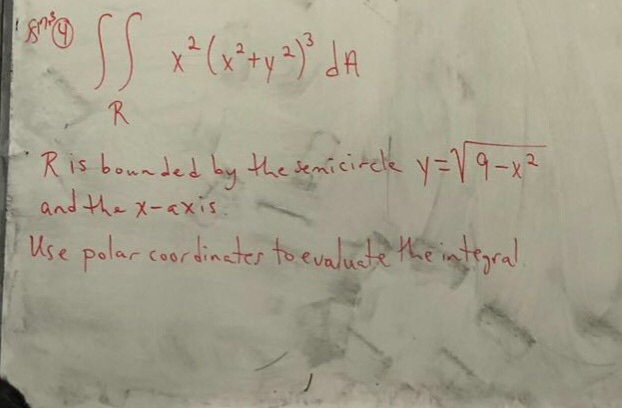 ④ ∬ x²(x²+y²)³ dA
R
R is bounded by the semicircle y=√9-x²
and the x-axis.
Use polar coordinates to evaluate the integral.